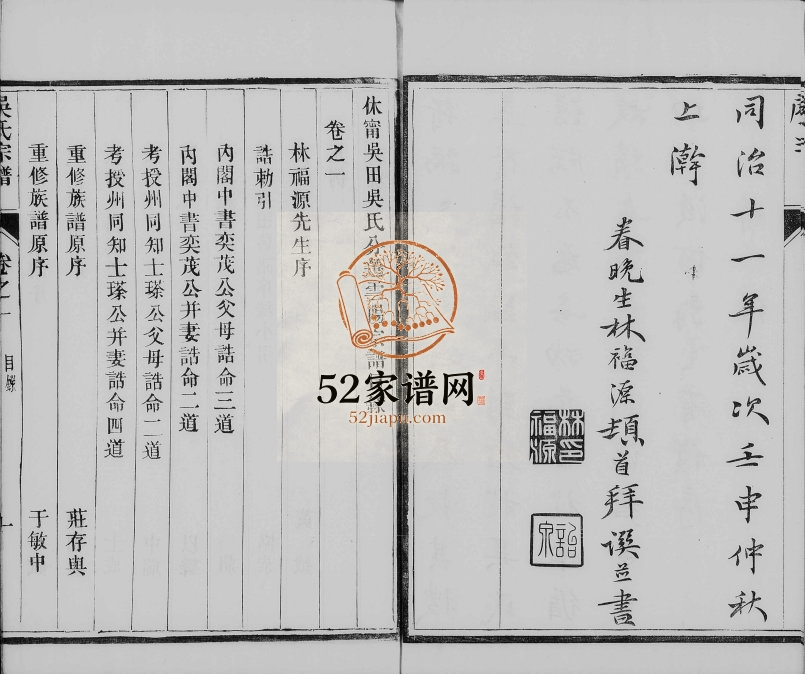 同治十一年歲次壬申仲秋
上澣
春晚生林福源頓首拜譔並書
林福源印
休甯吳田吳氏
宗譜
卷之一
林福源先生序
誥勅引
內閣中書奕茂公父母誥命三道
內閣中書奕茂公并妻誥命二道
考授州同知士瑹公父母誥命二道
考授州同知士瑹公并妻誥命四道
重修族譜原序 莊存與
重修族譜原序 于敏中
吳氏宗譜
卷之一
目錄
一
52家谱网
52jiapu.com